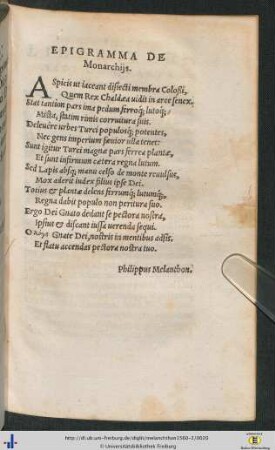 EPIGRAMMA DE
Monarchijs.
ASpicis ut iaceant disiecti membra Colossi,
Quem Rex Chaldæa uidit in arce senex.
Stat tantùm pars ima pedum ferroq́; lutoq́;
Mista, statim nimis corruitura suit.
Deleuêre urbes Turci populosq́; potentes,
Nec gens imperium sæuior ista tenet:
Sunt igitur Turci magnæ pars ferrea plantæ,
Et sunt infirmum cætera regna lutum.
Sed Lapis absq́; manu celso de monte reuulsus,
Mox aderit iudex filius ipse Dei.
Totius & plantæ delens ferrumq́; lutumq́;,
Regna dabit populo non peritura suo.
Ergo Dei Gnato dedant se pectora nostra,
Ipsius & discant iussa uerenda sequi.
O Gnate Dei, nostris in mentibus adsit,
Et flatu accendas pectora nostra tuo.
Philippus Melanthon.
http://dl.ub.uni-freiburg.de/diglit/melanchthon1560-2/0020
© Universitätsbibliothek Freiburg